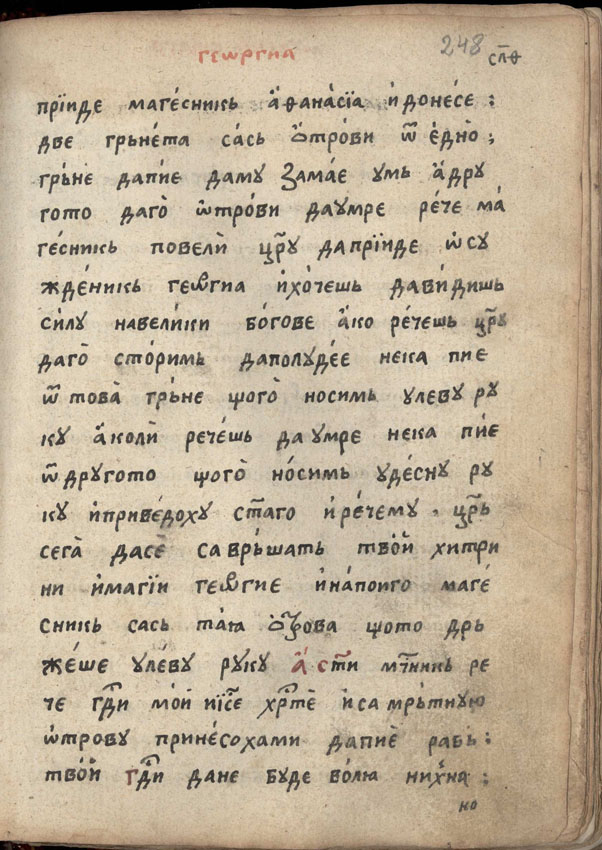 геѡргиа 248 слѳ
прїиде маге́сникь а҆ѳана́сїа и҆доне́се :
две грьне́та са́сь ѻ҆тро́ви ѿ є҆дно̀ ;
грьне дапи́е даму̀ замае умь а҆дру
гото даго̀ ѡ҆тро́ви даумре ре́че ма́
ге́сникь повели̂ цр҃у дапрїиде ѡ҆су
жде́никь геѡ҆гиа и҆хо́чешь дави́дишь
си́лу навели́ки бо́гове а҆ко ре́чешь цр҃у
даго̀ сто́римь даполуде́е нека пие
ѿ това̀ грьне що́го носимь улеву ру
ку а҆коли̂ рече́шь даумре нека пи́е
ѿ другото що́го но́симь уде́сну ру
ку и҆приве́доху ст҃аго и҆ре́чему , цр҃ь
сега̀ дасѐ саврь́шать тво́й хитри
ни и҆магїи геѡ҆гие и҆на́поиго маге́
сникь сась та́ꙗ ѻ҆трова щото дрь
же́ше уле́ву руку а҆ ст҃и мч҃никь ре
че гд҃и мо́й ії҃се хр҃тѐ и҆самрь́тную
ѡ҆трову прине́сохами дапиѐ рабь :
тво́й гд҃и дане буде во́лю ни́хна :
но